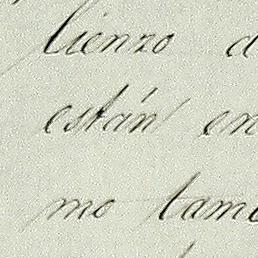 lienzo
están en
mo tam